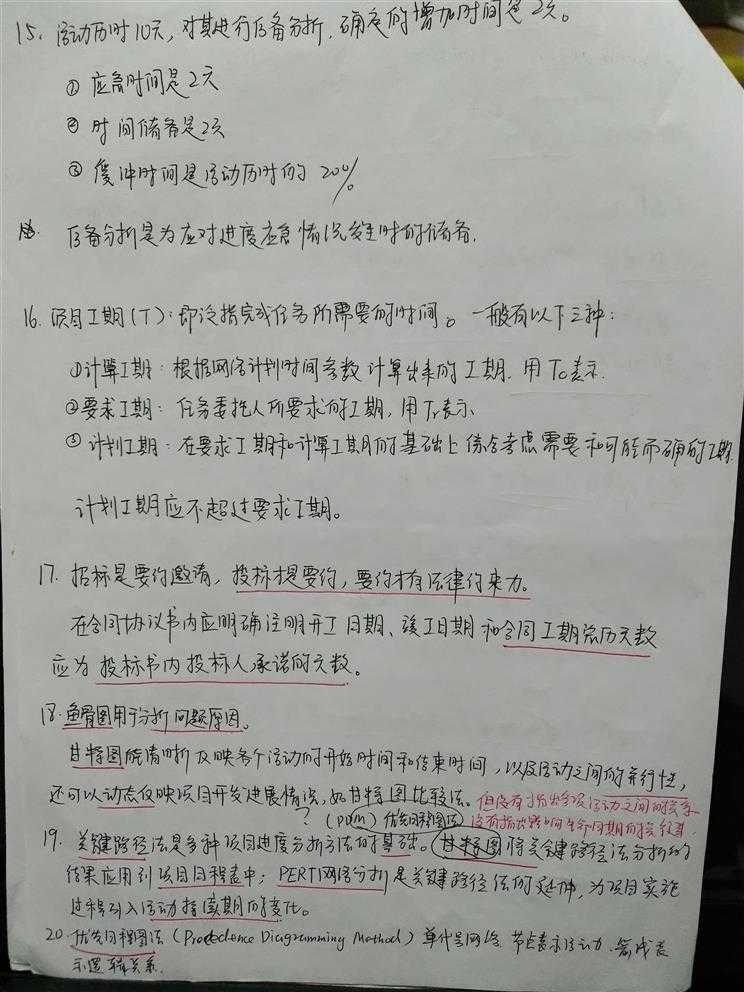 15. 活动历时10天，对其进行储备分析，确定的增加时间是2天。
① 应急时间是2天
② 时间储备是2天
③ 缓冲时间是活动历时的 20%
储备分析是为应对进度应急情况发生时的储备.
16. 项目工期(T)：即泛指完成任务所需要的时间。一般有以下三种：
①计算工期：根据网络计划时间参数计算出来的工期. 用Tc表示.
②要求工期：任务委托人所要求的工期，用Tr表示.
③计划工期：在要求工期和计算工期的基础上综合考虑需要和可能而确的工期.
计划工期应不超过要求工期。
17. 招标是要约邀请，投标才是要约，要约才有法律约束力。
在合同协议书内应明确注明开工日期、竣工日期和合同工期总历天数
应为投标书内投标人承诺的天数。
18. 鱼骨图用于分析问题原因。
甘特图能清晰反映各个活动的开始时间和结束时间，以及活动之间的并行性，
还可以动态反映项目开发进展情况，如甘特图比较法。但没有指出各项活动之间的关系
? (PDM) 优先日程图法) 没有指出影响生命周期的关键
19. 关键路径法是多种项目进度分析方法的基础。甘特图将关键路径法分析的
结果应用到项目日程表中；PERT网络分析是关键路径法的延伸，为项目实施
过程引入活动持续期的变化。
20. 优先日程图法 (Precedence Diagramming Method) 单代号网络. 节点表示活动. 箭线表
示逻辑关系.